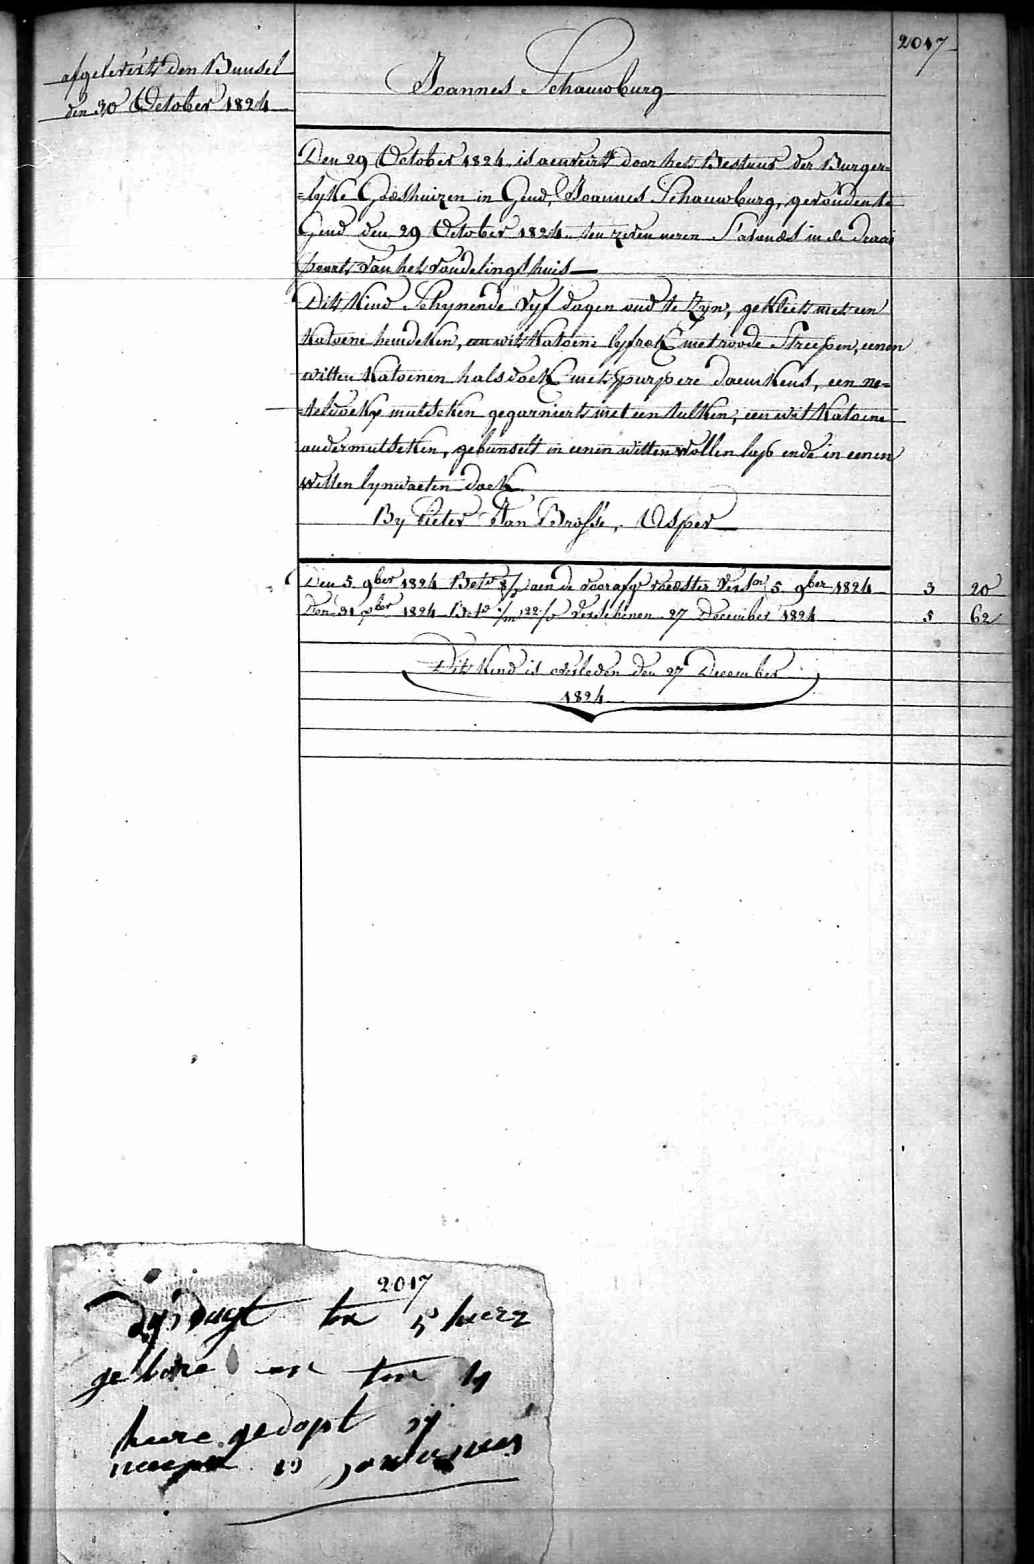 2017
afgeleverts den Bunsel
den 30 October 1824
Joannes Schauwburg
Den 29 October 1824 is aenveirt door het Bestuur der Burger=
=lyke Godshuizen in Gend, Joannes Schauwburg, gevonden te
Gend den 29 October 1824 ten zeven uren s'avonds in de draai
poorts van het vondelingshuis
Dits Kind Schynende Vyf dagen oud te Zyn, gekleets met een
Katoene hemdeken, een wit Katoene lyfrok met roode Streepen, eenen
witten Katoenen halsdoek met purpere daemkens, een ne=
=teldoekx mutseken gegarnierts met een tulken, een wit Katoene
ondermutseken, gebunselt in eenen witten Wollen lap ende in eenen
Witten lynwaeten doek
By Pieter Van Brosse, Asper
Den 5 9ber 1824 Bets aen de voorafg voedster Vers 5 9ber 1824 3 20
Den 31 xber 1824 Bets 122 Verschenen 27 December 1824 5 62
Dits Kind is overleden den 27 December
1824
2017
dysdagt ten 5 huere
gebore en ten 19
huere gedopt zy
naeme is joannes